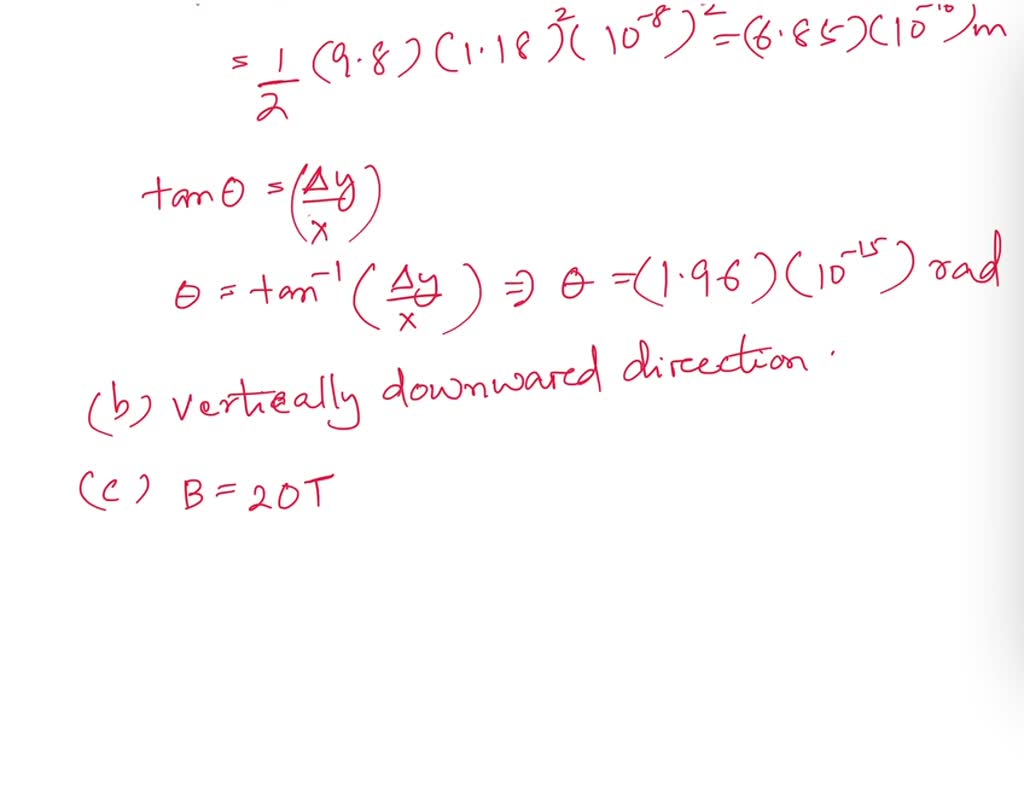 = 1/2 (9.8) (1.18)² (10⁻⁸)² = (6.85)(10⁻¹⁰)m
tanθ = (Δy/x)
θ = tan⁻¹ (Δy/x) ⇒ θ = (1.96)(10⁻¹⁵) rad
(b) vertically downward direction.
(c) B = 20T